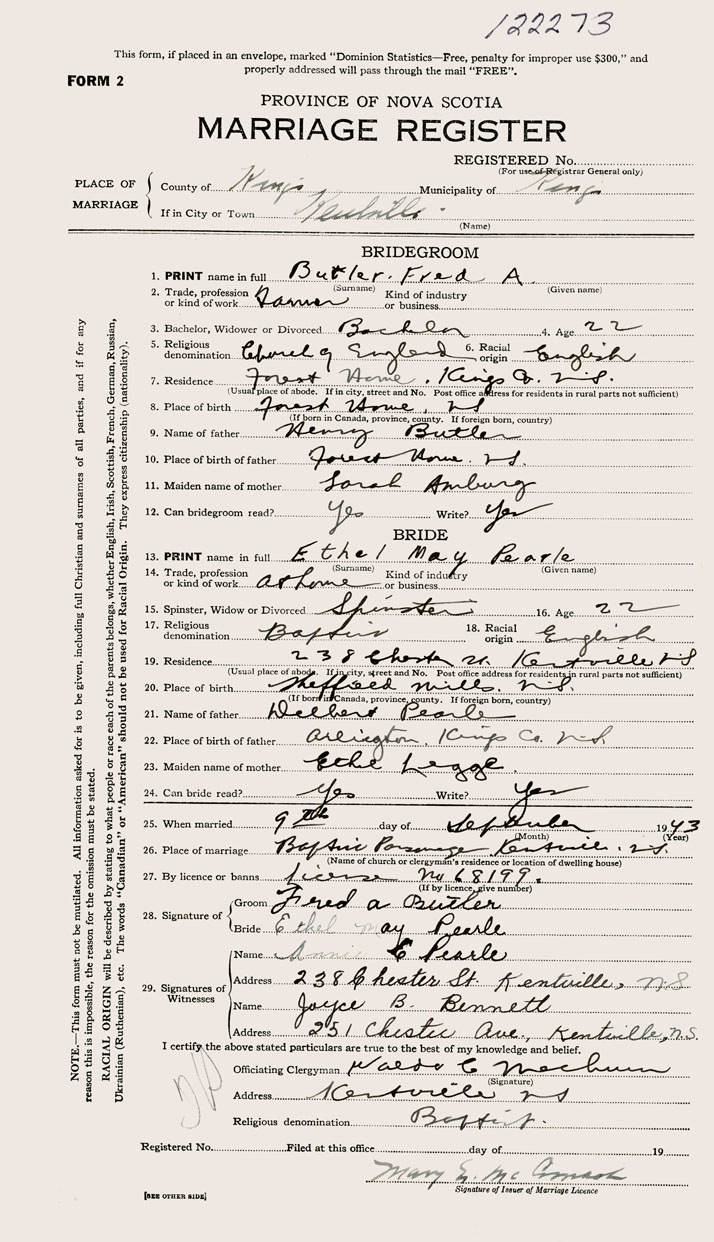 122273
This form, if placed in an envelope, marked "Dominion Statistics—Free, penalty for improper use $300," and
properly addressed will pass through the mail "FREE".
FORM 2
PROVINCE OF NOVA SCOTIA
MARRIAGE REGISTER
REGISTERED No.
(For use of Registrar General only)
PLACE OF MARRIAGE
County of Kings Municipality of Kings
If in City or Town Kentville
(Name)
BRIDEGROOM
1. PRINT name in full Butler. Fred A.
(Surname) (Given name)
2. Trade, profession or kind of work Farmer Kind of industry or business
3. Bachelor, Widower or Divorced Bachelor 4. Age 22
5. Religious denomination Church of England 6. Racial origin English
7. Residence Forest Home, Kings Co. N.S.
(Usual place of abode. If in city, street and No. Post office address for residents in rural parts not sufficient)
8. Place of birth Forest Home, NS
(If born in Canada, province, county. If foreign born, country)
9. Name of father Henry Butler
10. Place of birth of father Forest Home. NS.
11. Maiden name of mother Sarah
12. Can bridegroom read? Yes Write? Yes
BRIDE
13. PRINT name in full Ethel May Pearle
(Surname) (Given name)
14. Trade, profession or kind of work at home Kind of industry or business
15. Spinster, Widow or Divorced Spinster 16. Age 22
17. Religious denomination Baptist 18. Racial origin English
19. Residence 238 Chester St. Kentville NS
(Usual place of abode. If in city, street and No. Post office address for residents in rural parts not sufficient)
20. Place of birth Sheffield Mills. N.S.
(If born in Canada, province, county. If foreign born, country)
21. Name of father Delbert Pearle
22. Place of birth of father Arlington, Kings Co. N.S
23. Maiden name of mother Ethel Legge.
24. Can bride read? Yes Write? Yes
25. When married 9th day of September 1943
(Month) (Year)
26. Place of marriage Baptist Parsonage Kentville. N.S.
(Name of church or clergyman's residence or location of dwelling house)
27. By licence or banns license No 68199.
(If by licence, give number)
28. Signature of
Groom Fred A Butler
Bride Ethel May Pearle
29. Signatures of Witnesses
Name Annie E Pearle
Address 238 Chester St. Kentville, N.S
Name Joyce B. Bennett
Address 251 Chester Ave., Kentville, N.S.
I certify the above stated particulars are true to the best of my knowledge and belief.
Officiating Clergyman Waldo C
(Signature)
Address Kentville NS
Religious denomination Baptist.
Registered No. Filed at this office day of 19
Mary
Signature of Issuer of Marriage Licence
[SEE OTHER SIDE]
NOTE.—This form must not be mutilated. All information asked for is to be given, including full Christian and surnames of all parties, and if for any
reason this is impossible, the reason for the omission must be stated.
RACIAL ORIGIN will be described by stating to what people or race each of the parents belongs, whether English, Irish, Scottish, French, German, Russian,
Ukrainian (Ruthenian), etc. The words "Canadian" or "American" should not be used for Racial Origin. They express citizenship (nationality).